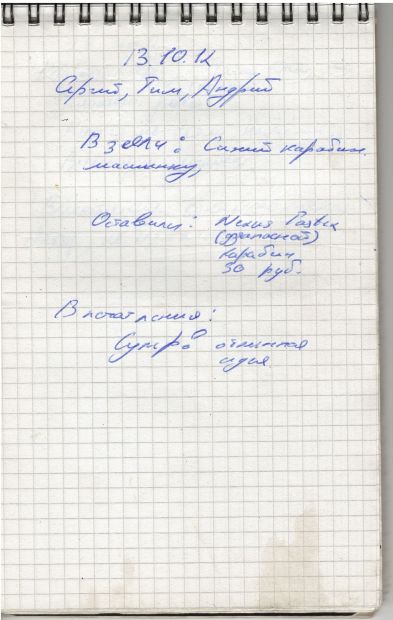 13.10.12
Сергей, Тим, Андрей
Взяли: Синий карабин.
машинку,
Оставили:
(запасной)
карабин
30 руб.
Впечатления:
Супер! отличная
идея